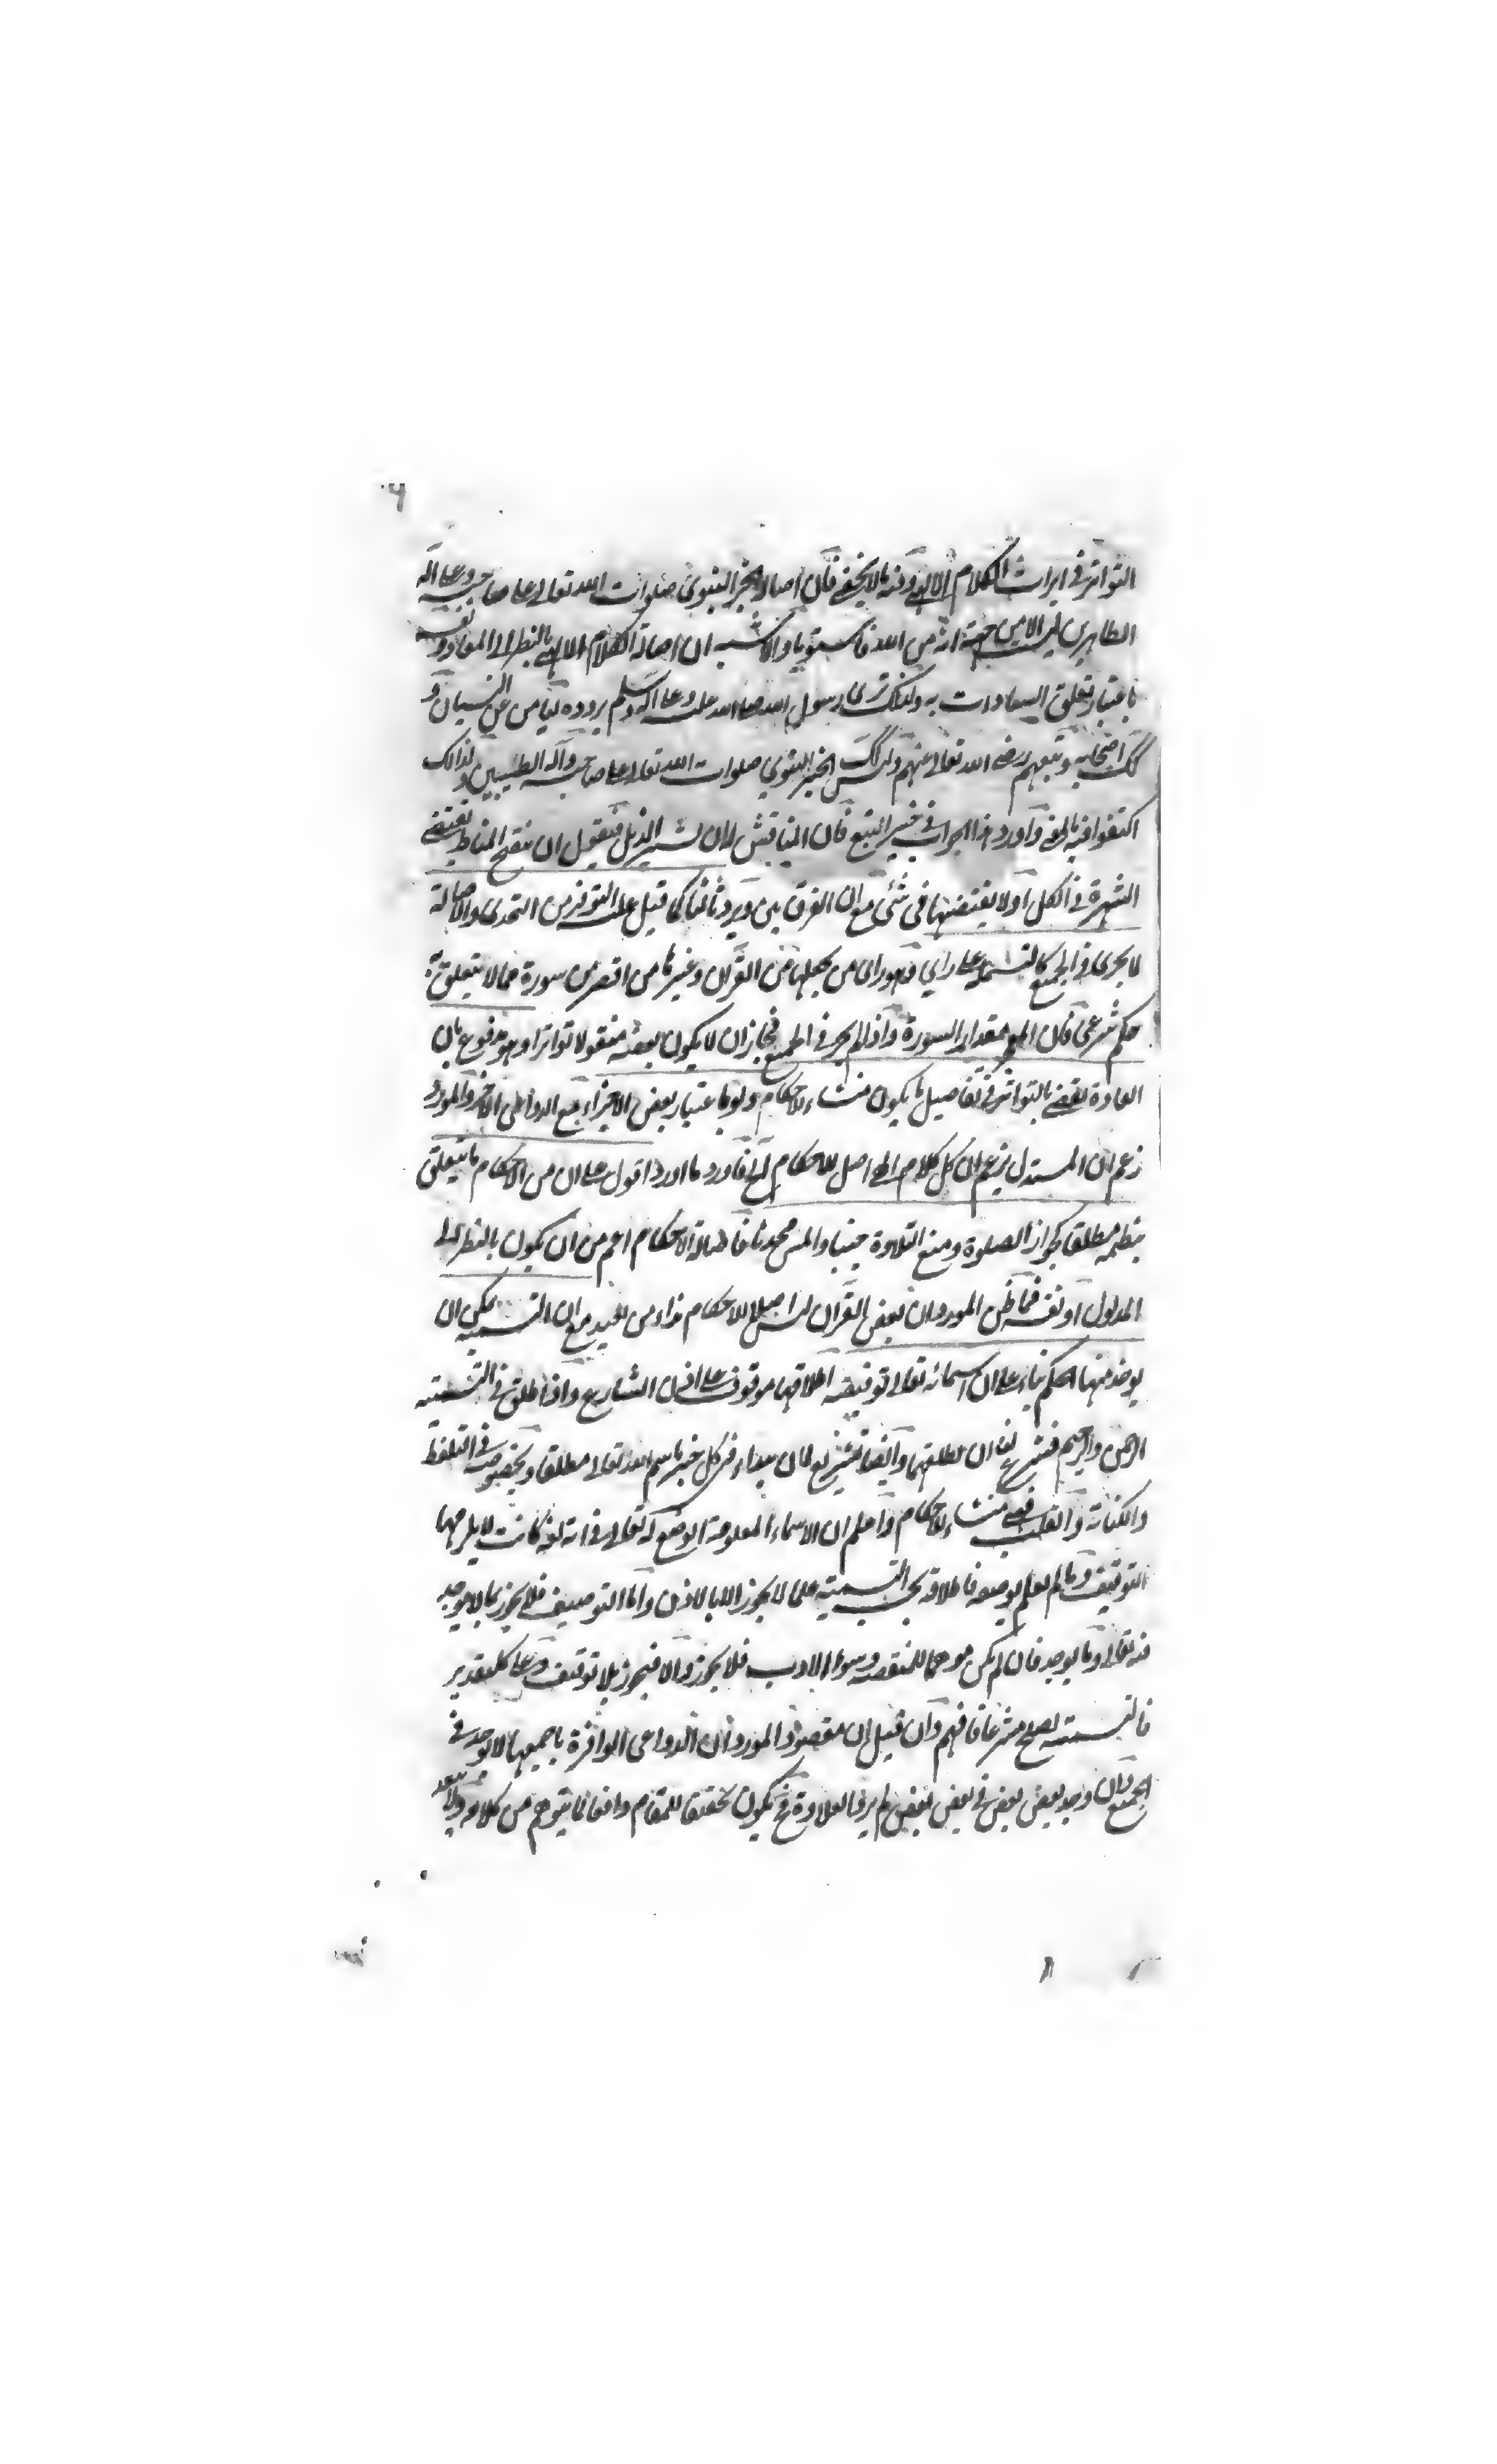 ٦
التواتر في ايراث الكلام الالهي وفيه ما لا يخفى فان اصالة الخبر النبوي صلوات الله تعالى على صاحبه وعلى اله
الطاهرين ليست الا من جهة انه من الله فاستويا والاشبه ان اصالة الكلام الالهي بالنظر الى المفاد ونفسه
باعتبار تعلق السعادات به ولذلك ترى رسول الله صلى الله عليه وعلى اله وسلم يردده ليأمن عن النسيان و
كذلك اصحابه وتبعهم رضي الله تعالى عنهم وليس كذلك الخبر النبوي صلوات الله تعالى على صاحبه وآله الطيبين ولذلك
اكتفوا فيه بالمعنى واورد هذا الجواب في خبر التبع فان المناقش لان يسير الذيل فيقول ان تنقيح المناط يقتضي
الشهرة في الكل اولا يقتضيها في شئ مع ان الفرق بين ويرد ثالثا كما قيل عليه التوفر من التحدي والاصالة
لا يجري في الجميع كالتسمية على راي وهو راي من يجعلها من القرآن وغيرها من اقصر من سورة مما لا يتعلق به
حكم شرعي فان المعجز مقدار السورة واذا لم يجر في الجميع فجاز ان لا يكون بعضه منقولا تواترا وهو مدفوع بان
العادة تقضي بالتواتر في تفاصيل ما يكون منشاء للاحكام ولو باعتبار بعض الاجزاء مع الدواعي الاخر والمورد
زعم ان المستدل يزعم ان كل كلام الهي اصل للاحكام فاورد ما اورد اقول على ان من الاحكام ما يتعلق
بنظمه مطلقا كجواز الصلوة ومنع التلاوة جنبا والمس محدثا فاصالة الاحكام اعم من ان يكون بالنظر الى
المدلول او نفسه فما ظن المورد ان بعض القرآن ليس اصلا للاحكام فذاء من بعيد مع ان التسمية يمكن ان
يوخذ منها الحكم بناء على ان اسمائه تعالى توقيفية اطلاقها موقوف على اذن الشارع واذا اطلق في التسمية
الرحمن والرحيم فشرع لنا ان نطلقهما وايضا تشريع لان يبداء في كل خير باسم الله تعالى مطلقا وبخصوصه في التلفظ
والكتابة والقلب فهي منشاء للاحكام واعلم ان الاسماء المعلومة الوضع له تعالى في اية لغة كانت لا يلزمها
التوقيف وما لم يعلم بوضعه فاطلاقه بحسب التسمية علما لا يجوز الا بالاذن واما التوصيف فلا يجوز بما لا يوجد
فيه تعالى وما يوجد فان لم يكن موهما للمنقصة وسوء الادب فلا يجوز والا فيجوز بلا توقيف وعلى كل تقدير
فالتسمية يصلح مشرعا فافهم وان قيل ان مقصود المورد ان الدواعي الوافرة باجمعها لا توجد في
الجميع وان وجد بعض بعض في بعض لم يرد العلاوة فح يكون تحقيقا للمقام دافعا لما يتوهم من كلامه ولا يبعد